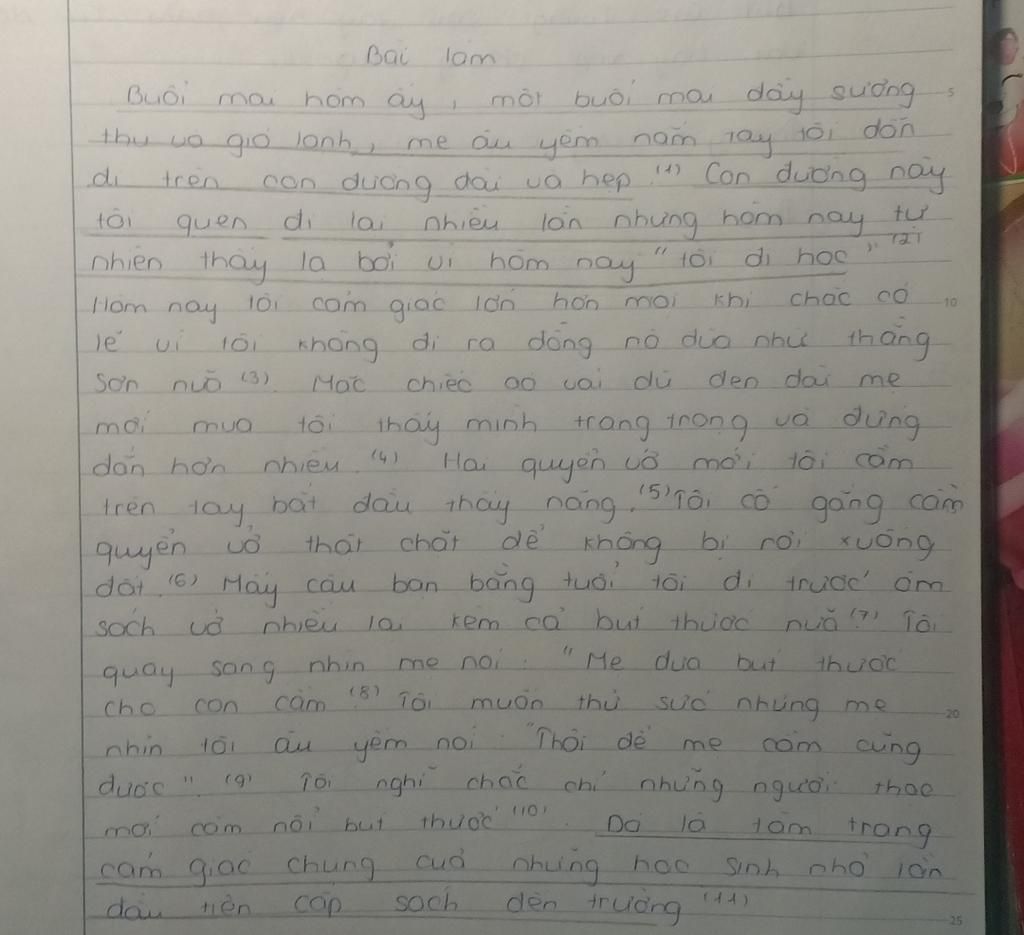 Bài làm
Buổi mai hôm ấy, một buổi mai đầy sương
thu và gió lạnh, mẹ âu yếm nắm tay tôi dẫn
đi trên con đường dài và hẹp (1) Con đường này
tôi quen đi lại nhiều lần nhưng hôm nay tự
nhiên thấy lạ bởi vì hôm nay "tôi đi học" (2)
Hôm nay tôi cảm giác lớn hơn mọi khi chắc có
lẽ vì tôi không đi ra đồng nô đùa như thằng
Sơn nữa (3). Mặc chiếc áo vải dù đen dài mẹ
mới mua tôi thấy mình trang trọng và đứng
đắn hơn nhiều. (4) Hai quyển vở mới tôi cầm
trên tay bắt đầu thấy nặng. (5) Tôi cố gắng cầm
quyển vở thật chặt để không bị rơi xuống
đất. (6) Mấy cậu bạn bằng tuổi tôi đi trước ôm
sách vở nhiều lại kèm cả bút thước nữa (7) Tôi
quay sang nhìn mẹ nói: "Mẹ đưa bút thước
cho con cầm (8) Tôi muốn thử sức nhưng mẹ
nhìn tôi âu yếm nói "Thôi để mẹ cầm cũng
được". (9) Tôi nghĩ chắc chỉ những người thạo
mới cầm nổi bút thước (10). Đó là tâm trạng
cảm giác chung của những học sinh nhỏ lần
đầu tiên cắp sách đến trường (11)
5
10
20
25